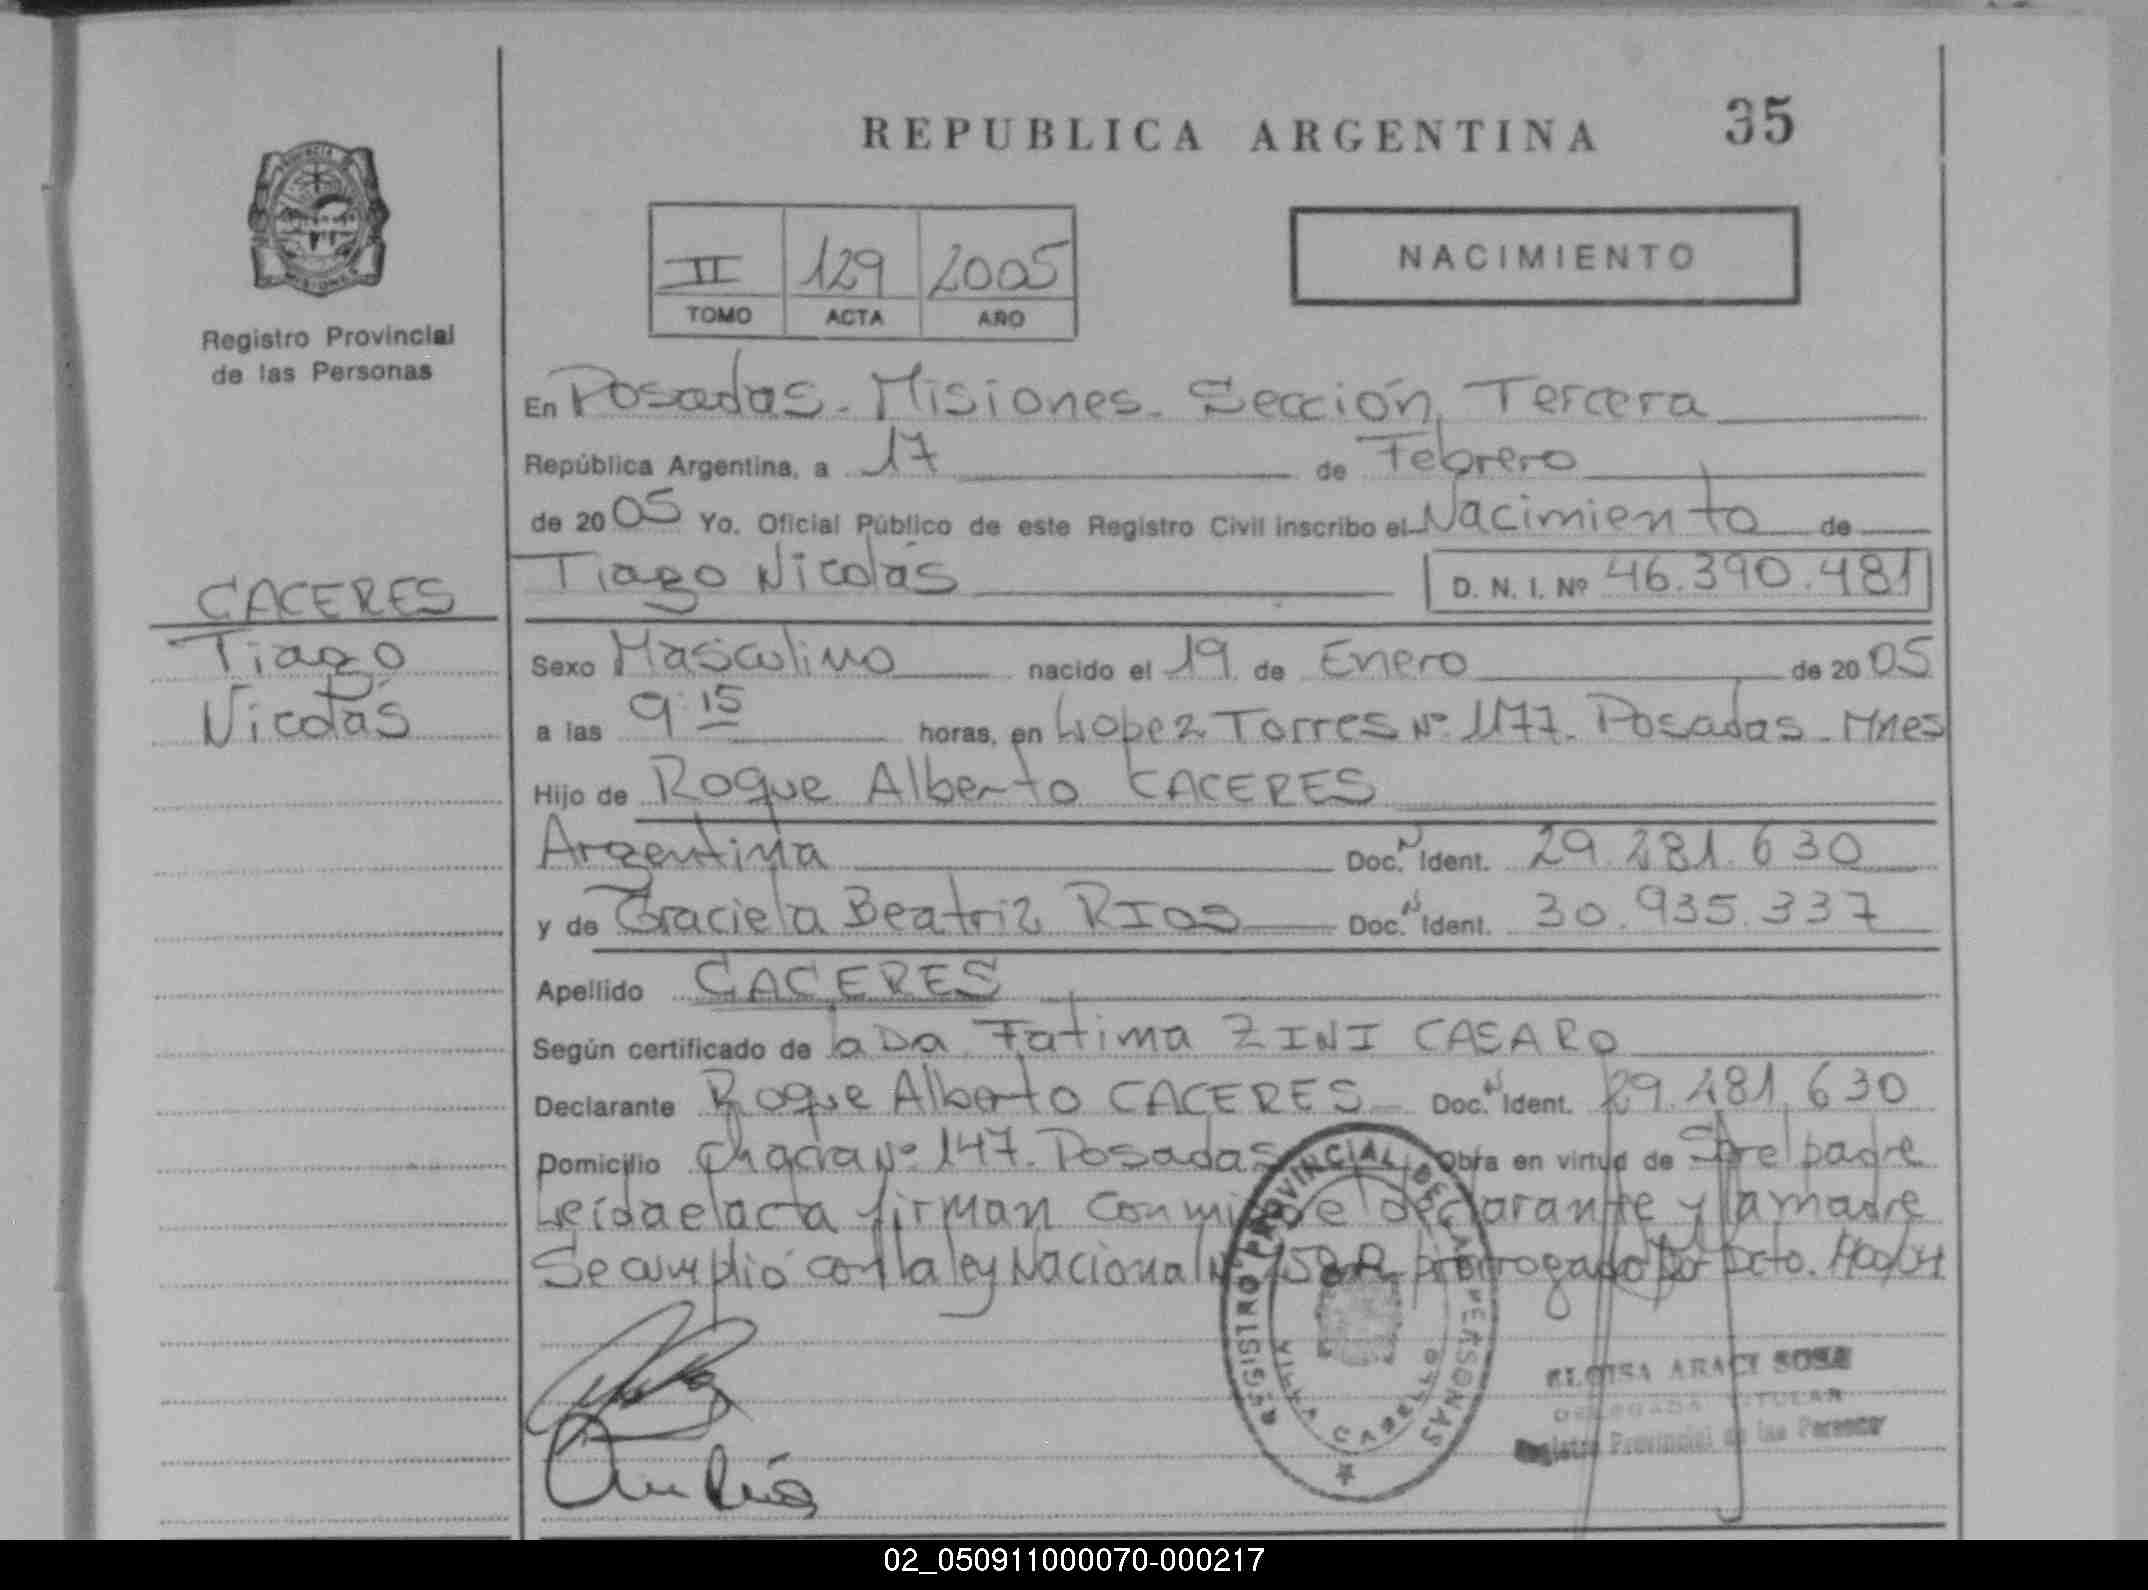 REPUBLICA ARGENTINA
35
II 129 2005
TOMO ACTA AÑO
NACIMIENTO
Registro Provincial
de las Personas
CACERES
Tiago
Nicolás
En Posadas - Misiones - Sección Tercera
República Argentina, a 17 de Febrero
de 2005 Yo, Oficial Público de este Registro Civil inscribo el Nacimiento de
Tiago Nicolás D. N. I. Nº 46.390.481
Sexo Masculino nacido el 19 de Enero de 2005
a las 9:15 horas, en Lopez Torres Nº 1177. Posadas - Mnes
Hijo de Roque Alberto CACERES
Argentina Doc. N Ident. 29.281.630
y de Graciela Beatriz RIOS Doc. N Ident. 30.935.337
Apellido CACERES
Según certificado de la Da Fatima ZINI CASARO
Declarante Roque Alberto CACERES Doc. N Ident. 29.281.630
Domicilio Chacra Nº 147. Posadas Obra en virtud de Ser el padre
Leída el acta firman conmigo el declarante y la madre
Se cumplió con la ley Nacional prorrogado por Dcto.
REGISTRO PROVINCIAL DE LAS PERSONAS
VILLA CABELLO
ELOISA ARACI SOSA
DELEGADA TITULAR
Registro Provincial de las Personas
02_050911000070-000217